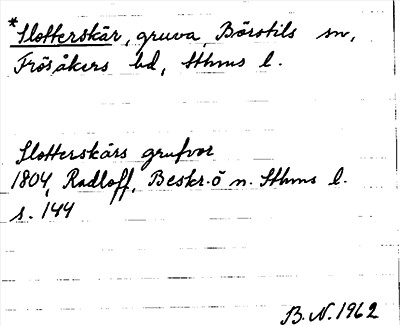 *Slotterskär, gruva, Börstils sn,
Frösåkers hd, Sthms l.
Slotterskärs grufvor
1804, Radloff, Beskr. ö n. Sthms l.
s. 144
B.N. 1962